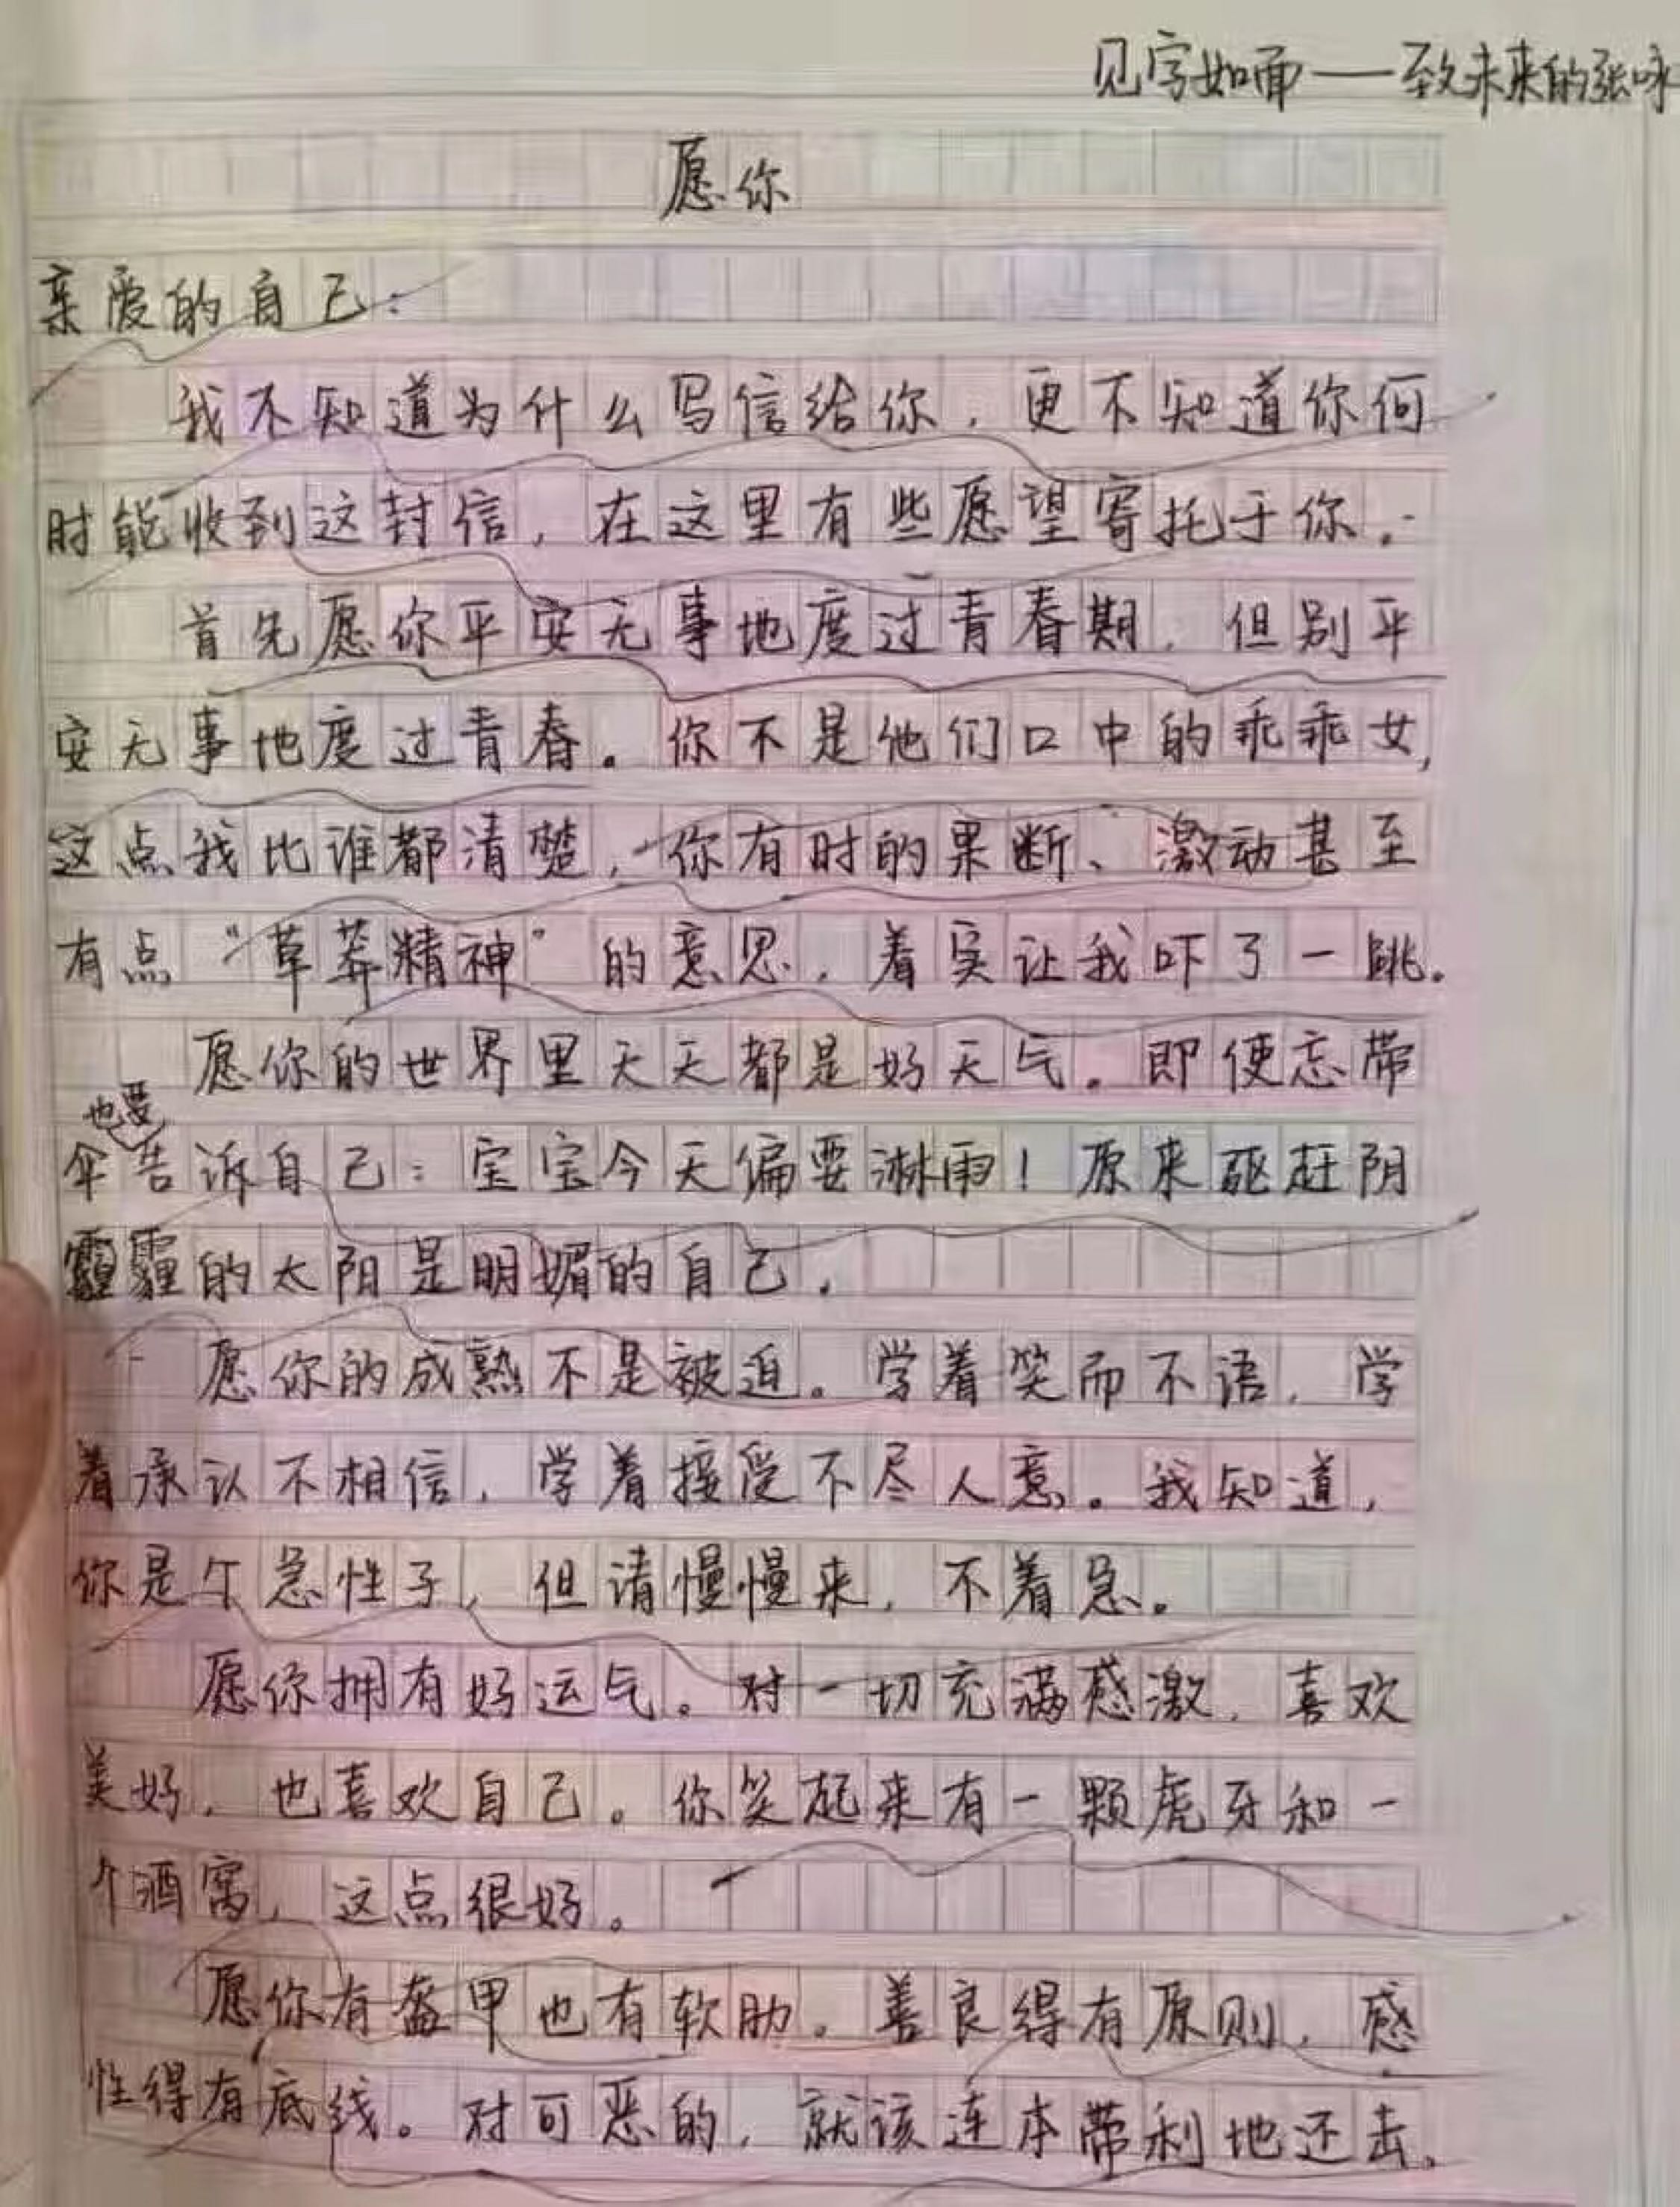 见字如面——致未来的张咏
愿你
亲爱的自己:
我不知道为什么写信给你,更不知道你何
时能收到这封信,在这里有些愿望寄托于你。
首先愿你平安无事地度过青春期,但别平
安无事地度过青春。你不是他们口中的乖乖女,
这点我比谁都清楚,你有时的果断、激动甚至
有点“草莽精神”的意思,着实让我吓了一跳。
愿你的世界里天天都是好天气。即使忘带
伞也要告诉自己:宝宝今天偏要淋雨!原来驱赶阴
霾的太阳是明媚的自己。
愿你的成熟不是被迫。学着笑而不语,学
着承认不相信,学着接受不尽人意。我知道,
你是个急性子,但请慢慢来,不着急。
愿你拥有好运气。对一切充满感激,喜欢
美好,也喜欢自己。你笑起来有一颗虎牙和一
个酒窝,这点很好。
愿你有盔甲也有软肋。善良得有原则,感
性得有底线。对可恶的,就该连本带利地还击。